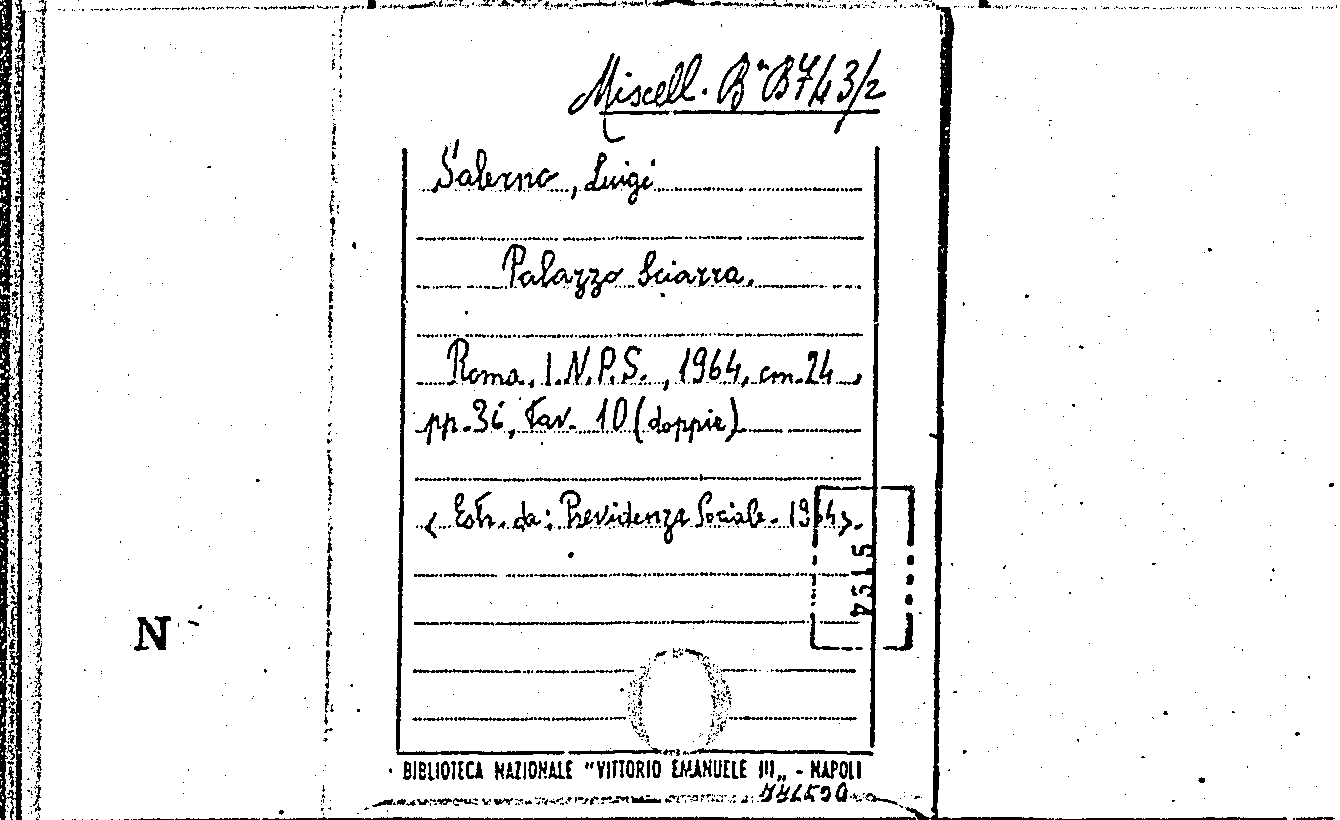 Miscell. Bª B743/2
Salerno, Luigi
Palazzo Sciarra.
Roma, I.N.P.S., 1964, cm. 24,
pp. 36, tav. 10 (doppie)
< Estr. da: Previdenza Sociale. 1964>.
N
BIBLIOTECA NAZIONALE "VITTORIO EMANUELE III" - NAPOLI